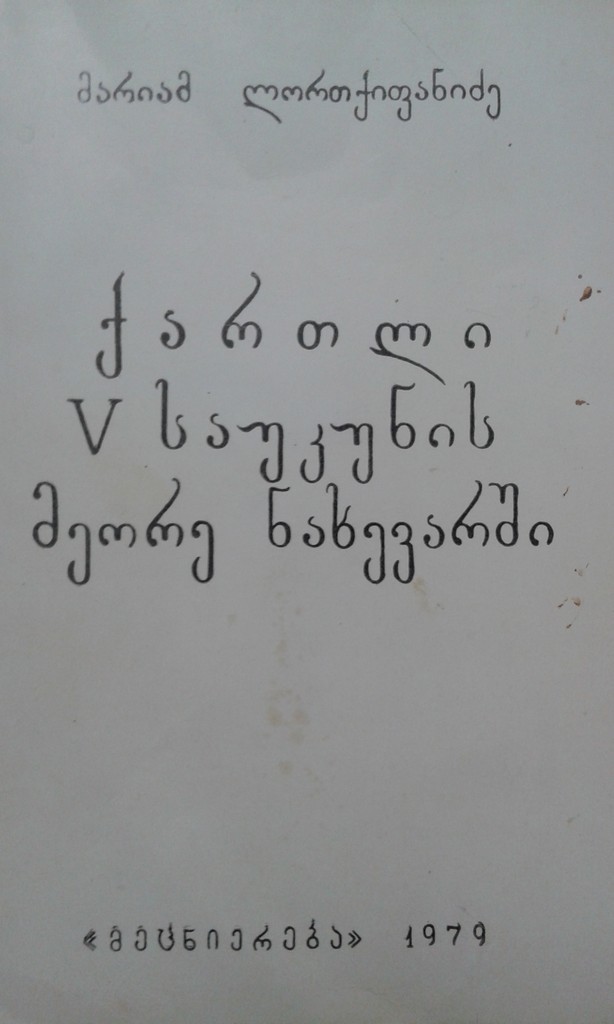 მარიამ ლორთქიფანიძე
ქართლი
V საუკუნის
მეორე ნახევარში
«მეცნიერება» 1979